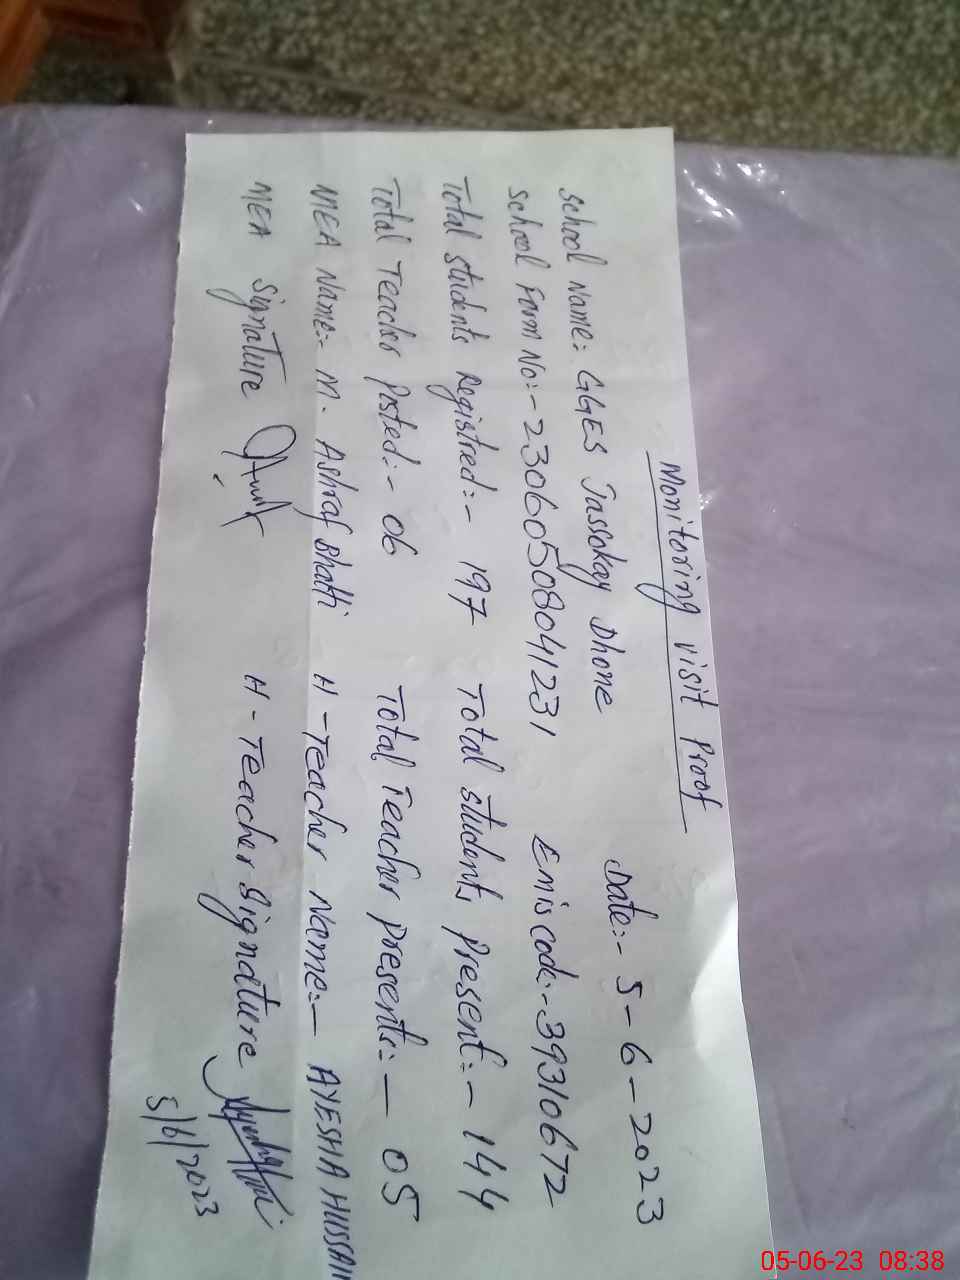 Monitoring visit Proof
Date:- 5-6-2023
School Name:- GGES Jassokay Dhone
School Form No:- 23060508041231 Emis code:- 39310672
Total students Registred:- 197 Total students Present:- 144
Total Teacher Posted:- 06 Total Teacher presents:- 05
MEA Name:- M. Ashraf Bhatti H-Teacher Name:- AYESHA HUSSAIN
MEA Signature H-Teacher Signature
5/6/2023
05-06-23 08:38